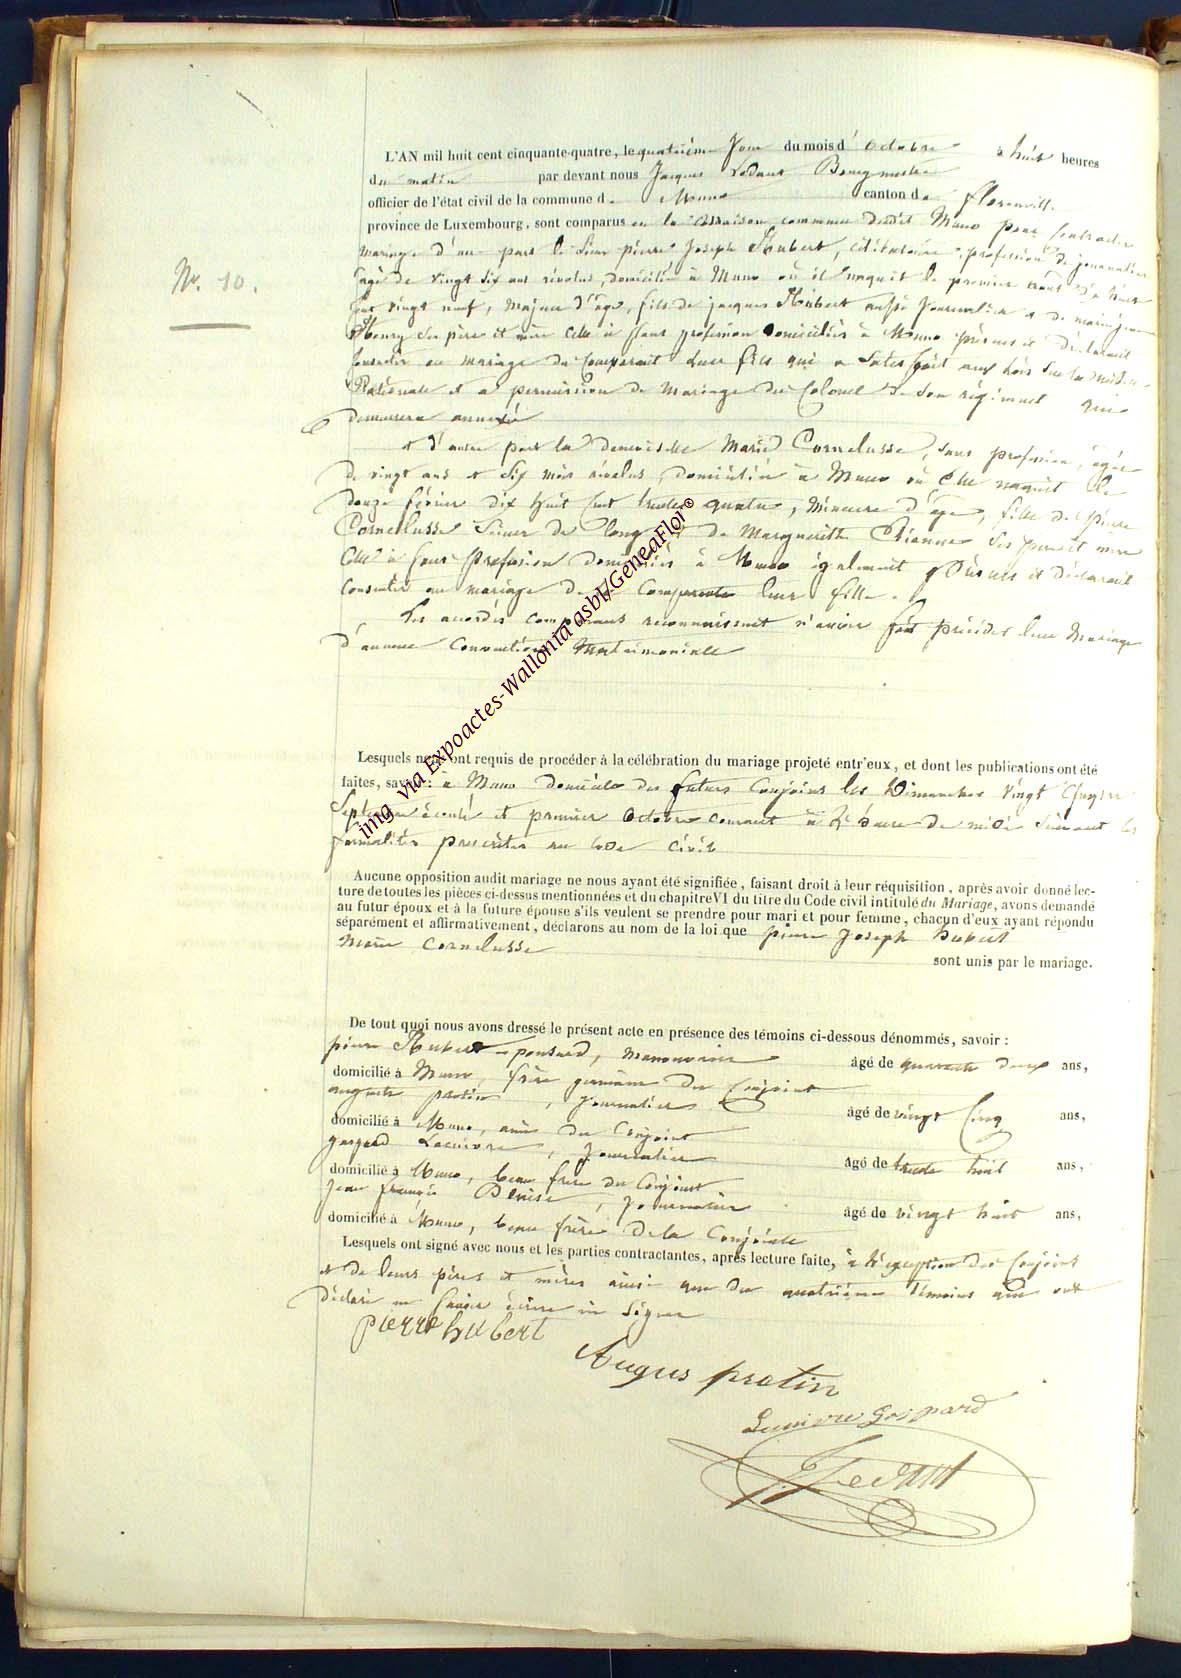 L'AN mil huit cent cinquante-quatre, le quatrième jour du mois d'octobre à huit heures
du matin par devant nous Jacques Ledant Bourgmestre
officier de l'état civil de la commune de Muno canton de florenville
province de Luxembourg, sont comparus en la maison commune dudit Muno pour contracter
mariage d'une part le Sieur pierre Joseph Hubert, célibataire, profession de journalier
âgé de vingt six ans révolus, domicilié à Muno où il naquit le premier
vingt neuf, majeur d'âge, fils de jacques Hubert aussi journalier et de marie
Nr. 10.
Henry ses père et mère celle ci sans profession domiciliés à Muno présents et déclarant
consentir au mariage du comparant leur fils qui a satisfait aux lois sur la milice
Nationale et a permission de mariage du Colonel de son régiment qui
demeurera annexée
et d'autre part la demoiselle Marie Cornelusse, sans profession, âgée
de vingt ans et six mois révolus, domiciliée à Muno où elle naquit le
douze février dix huit cent trente quatre, mineure d'âge, fille de pierre
Cornelusse Scieur de long et de Marguerithe Etienne ses père et mère
celle ci sans profession domiciliés à Muno également présents et déclarant
consentir au mariage de la Comparante leur fille.
Les accordés comparants reconnaissent n'avoir fait précéder leur Mariage
d'aucune Convention Matrimoniale
Lesquels nous ont requis de procéder à la célébration du mariage projeté entr'eux, et dont les publications ont été
faites, savoir : à Muno domicile des futurs Conjoints les Dimanches vingt quatre
Septembre écoulé et premier Octobre courant à l'heure de midi suivant les
formalités prescrites au code civil
Aucune opposition audit mariage ne nous ayant été signifiée, faisant droit à leur réquisition, après avoir donné lec-
ture de toutes les pièces ci-dessus mentionnées et du chapitre VI du titre du Code civil intitulé du Mariage, avons demandé
au futur époux et à la future épouse s'ils veulent se prendre pour mari et pour femme, chacun d'eux ayant répondu
séparément et affirmativement, déclarons au nom de la loi que pierre Joseph hubert
Marie Cornelusse
sont unis par le mariage.
De tout quoi nous avons dressé le présent acte en présence des témoins ci-dessous dénommés, savoir :
pierre Hubert - ponsard, Manouvrier âgé de quarante deux ans,
domicilié à Muno, frère germain du Conjoint
auguste protin, journalier âgé de vingt Cinq ans,
domicilié à Muno, ami du Conjoint
gaspard Lacuivre, journalier âgé de trente huit ans,
domicilié à Muno, beau frère du Conjoint
Jean françois Denise, journalier âgé de vingt huit ans,
domicilié à Muno, beau frère de la Conjointe
Lesquels ont signé avec nous et les parties contractantes, après lecture faite, à l'exception des Conjoints
et de leurs pères et mères ainsi que du quatrième témoins qui ont
déclaré ne savoir écrire ni signer
pierre hubert
Augus protin
Gaspard
J. Ledant
img via Expoactes-Wallonia asbl/GeneaFlor©